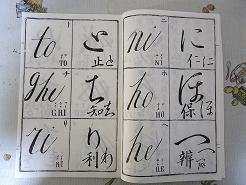 ニ
ni
ニ
NI
に
仁に
ホ
ho
ホ
HO
ほ
保ほ
ヘ
he
ヘ
HE
へ
辨へ
ト
to
ト
TO
と
止と
チ
ghi
チ
GHI
ち
知ち
リ
ri
リ
RI
り
利り